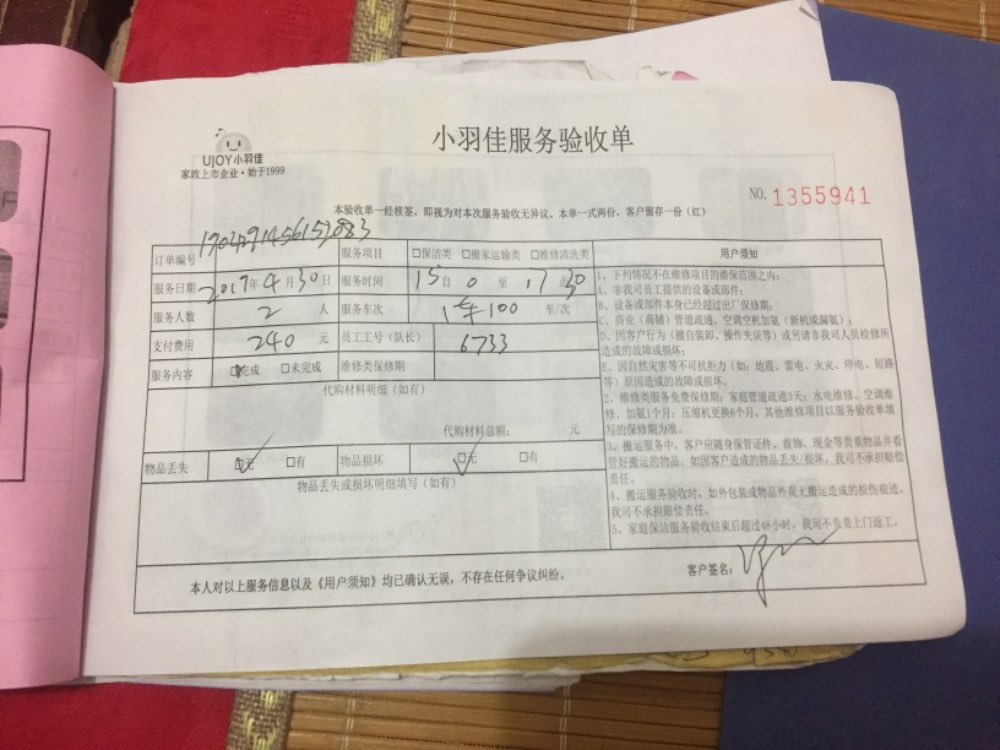 UJOY小羽佳
家政上市企业·始于1999
小羽佳服务验收单
NO. 1355941
本验收单一经核签，即视为对本次服务验收无异议。本单一式两份，客户留存一份（红）
订单编号
服务项目 □保洁类 □搬家运输类 □维修清洗类
服务日期 2017年4月30日 服务时间 15 自 0 至 17 点 30
服务人数 2 人 服务车次 100 车/次
支付费用 240 元 员工工号（队长） 6733
服务内容 □完成 □未完成 维修类保修期
代购材料明细（如有）
代购材料总额： 元
物品丢失 □无 □有 物品损坏 □无 □有
物品丢失或损坏明细填写（如有）
用户须知
1、下列情况不在维修项目的维保范围之内：
A、非我司员工提供的设备或部件；
B、设备或部件本身已经超过出厂保修期；
C、商业（商铺）管道疏通、空调空机加氨（新机或漏氨）；
D、因客户行为（擅自装卸、操作失误等）或另请非我司人员检修所
造成的故障或损坏；
E、因自然灾害等不可抗拒力（如：地震、雷电、火灾、停电、短路
等）原因造成的故障或损坏。
2、维修类服务免费保修期：家庭管道疏通3天；水电维修、空调维
修、加氨1个月；压缩机更换6个月。其他维修项目以服务验收单填
写的保修期为准。
3、搬运服务中，客户应随身保管证件、首饰、现金等贵重物品并看
管好搬运的物品。如因客户造成的物品丢失/损坏，我司不承担赔偿
责任。
4、搬运服务验收时，如外包装或物品外观无搬运造成的损伤痕迹，
我司不承担赔偿责任。
5、家庭保洁服务验收结束后超过48小时，我司不负责上门返工。
本人对以上服务信息以及《用户须知》均已确认无误，不存在任何争议纠纷。
客户签名：